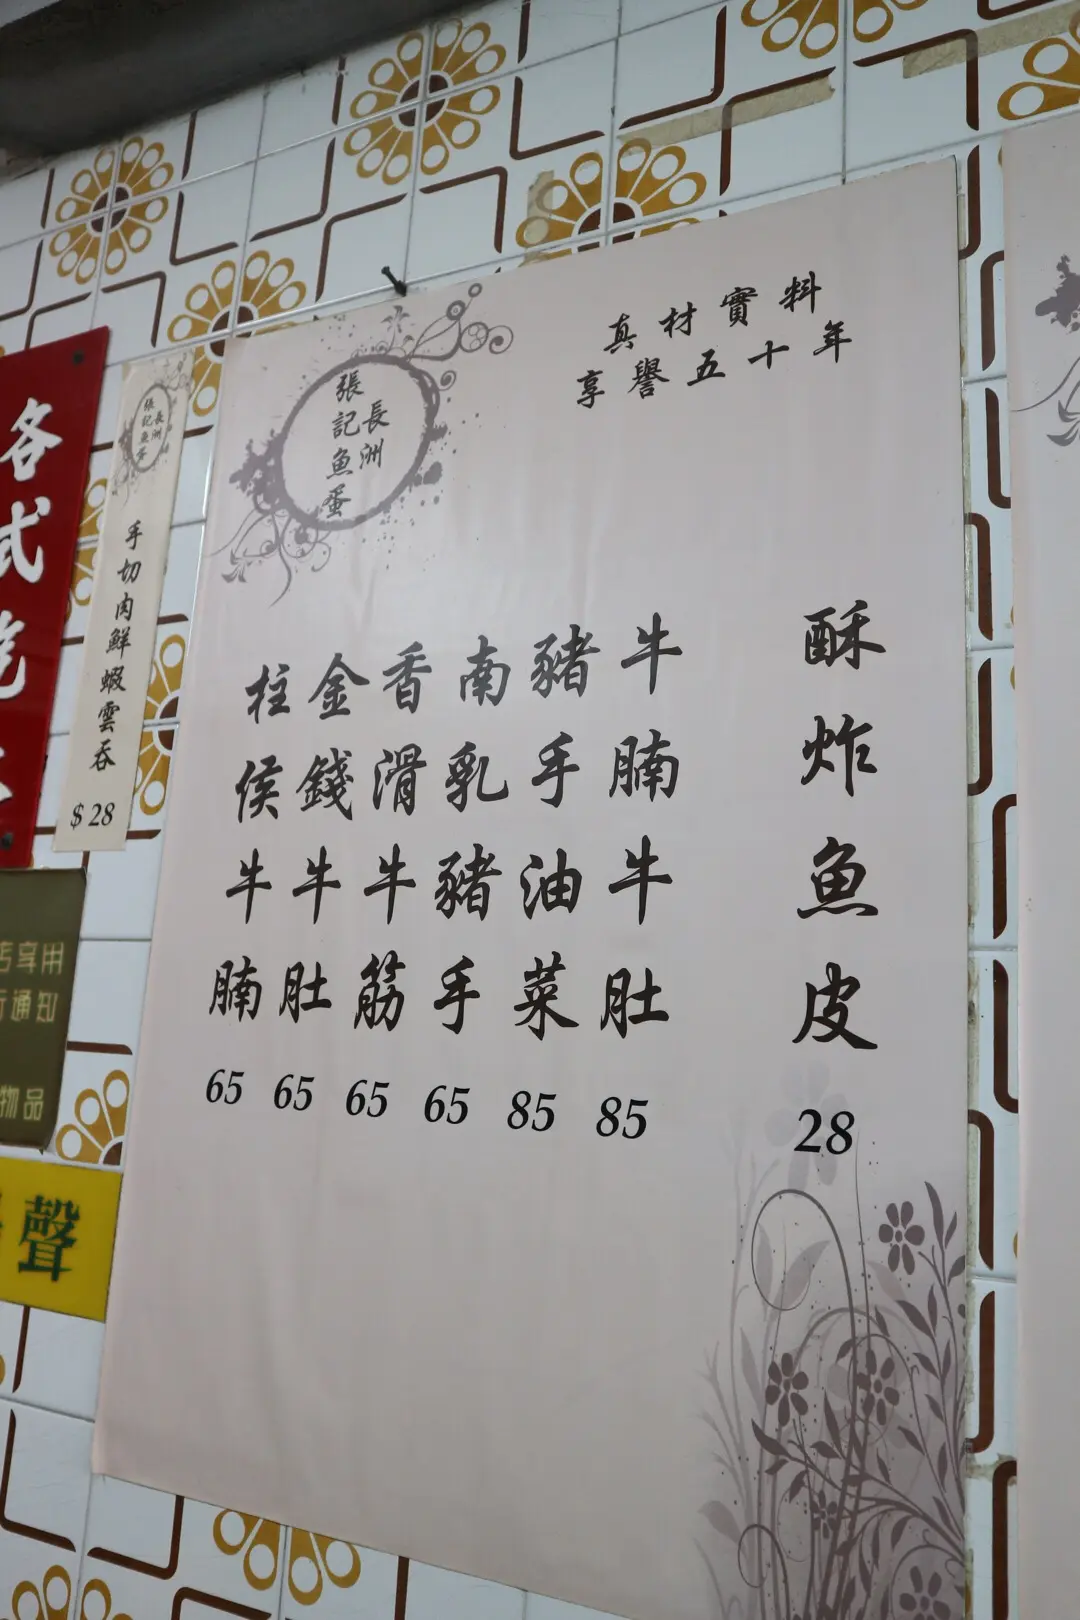 真材實料
享譽五十年
長洲
張記魚蛋
酥炸魚皮 28
牛腩牛肚 85
豬手油菜 85
南乳豬手 65
香滑牛筋 65
金錢牛肚 65
柱侯牛腩 65
長洲
張記魚蛋
手切肉鮮蝦雲吞 $28
各式
享用
通知
物品
聲